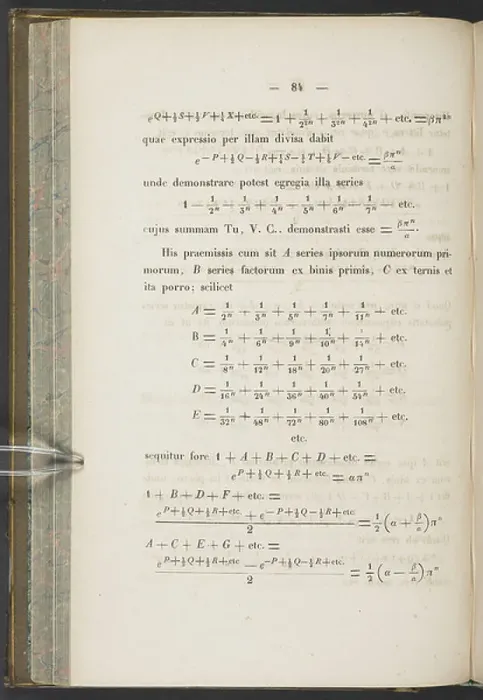 — 84 —
e^{Q+½S+⅓V+¼X+etc.} = 1 + 1/2^{2n} + 1/3^{2n} + 1/4^{2n} + etc. = βπ^{2n}
quae expressio per illam divisa dabit
e^{−P+½Q−⅓R+¼S−⅕T+⅙V−etc} = βπ^n/α
unde demonstrare potest egregia illa series
1 − 1/2^n − 1/3^n + 1/4^n − 1/5^n + 1/6^n − 1/7^n − etc.
cujus summam Tu, V. C., demonstrasti esse = βπ^n/α.
His praemissis cum sit A series ipsorum numerorum pri-
morum, B series factorum ex binis primis, C ex ternis et
ita porro; scilicet
A = 1/2^n + 1/3^n + 1/5^n + 1/7^n + 1/11^n + etc.
B = 1/4^n + 1/6^n + 1/9^n + 1/10^n + 1/14^n + etc.
C = 1/8^n + 1/12^n + 1/18^n + 1/20^n + 1/27^n + etc.
D = 1/16^n + 1/24^n + 1/36^n + 1/40^n + 1/54^n + etc.
E = 1/32^n + 1/48^n + 1/72^n + 1/80^n + 1/108^n + etc.
etc.
sequitur fore 1 + A + B + C + D + etc. =
e^{P+½Q+⅓R+etc.} = απ^n
1 + B + D + F + etc. =
(e^{P+½Q+⅓R+etc} + e^{−P+½Q−⅓R+etc})/2 = ½(α + β/α)π^n
A + C + E + G + etc. =
(e^{P+½Q+⅓R+etc} − e^{−P+½Q−⅓R+etc.})/2 = ½(α − β/α)π^n